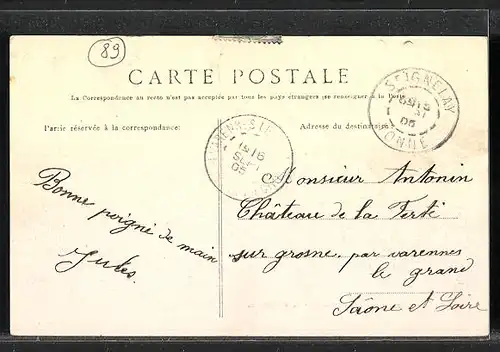 89
CARTE POSTALE
La Correspondance au recto n'est pas acceptée par tous les pays étrangers (se renseigner à la Poste)
Partie réservée à la correspondance:
Adresse du destinataire:
SEIGNELAY
YONNE
16
05
Monsieur Antonin
Château de la Ferté
sur grosne, par varennes
le grand
Saône et Loire
Bonne poigné de main
Jules.